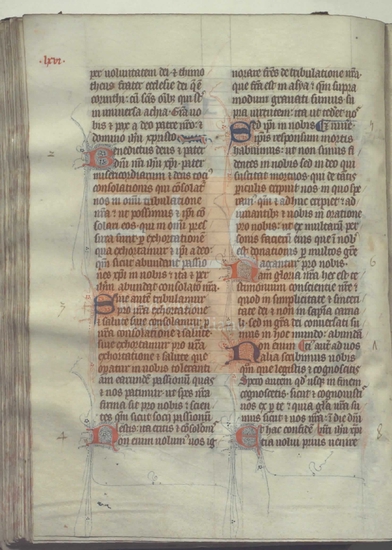 lxvi
per voluntatem dei & thimo
theus frater ecclesie dei q̄ ē
corinthi: cū sāc̄ oīb; qui sūt
in universa achaia. Grā vo
bis & pax a deo patre nr̄o: &
domino ihū xpisto
Benedictus deus & pater
dn̄i nr̄i ihū xpi: pater
misericordiarū & deus toci
consolationis qui cōsolat
nos in omī tribulatione
nr̄a: ut possimus & ip̄i cō
solari eos. qui in omi pres
sura sunt: p exhortationē
qua exhortamur & ip̄i a deo
qm̄ sicut abundāt passio
nes xpi in nobis: ita & per
xpm̄ abundat consolatio nr̄a
Sive autē tribulamur
pro vr̄a exhortatione
& salute sive consolamur p
vr̄a consolatione & salute
sive exhortamur pro vr̄a
exhortatione & salute que
opatur in nobis toleranti
am earundē passionū quas
& nos patimur. ut spes nr̄a
firma sit pro vobis: scien
tes qm̄ sicut socii passionū
estis: ita eritis & cōsolatiōis
Non enim volum' vos ig
norare fr̄es de tribulatione nr̄a.
que fc̄a est in asia: qm̄ supra
modum gravati sumus su
pra virtutem: ita ut tederet nos
Sed ip̄i in nobis
ip̄is responsum mortis
habuimus: ut non simus fi
dentes in nobis sed in deo qui
suscitat mortuos. qui de tātis
piculis eripuit nos & eruit in quo spe
ram' qm̄ & adhuc eripiet: ad
iuvantib; & vobis in oratione
pro nobis: ut ex multarū per
sonis facierū eius que in nob'
est donationis p multos grē
agantur pro nobis.
Nam gloria nr̄a hec est te
stimonium consciencie nr̄e
quod in simplicitate & sinceri
tate dei: & non in sapīa carna
li. sed in grā dei conversati su
mus in hoc mundo: abundā
cius autē ad vos
Non enim
alia scribimus vobis
qm̄ que legistis & cognoscitis
Spero autem qd usq; in finem
cognoscetis: sicut & cognovistis
nos ex pte: quia glā vr̄a su
mus sicut & vos nr̄a: ī die dn̄i
Et hac confidē
cia volui prius venire